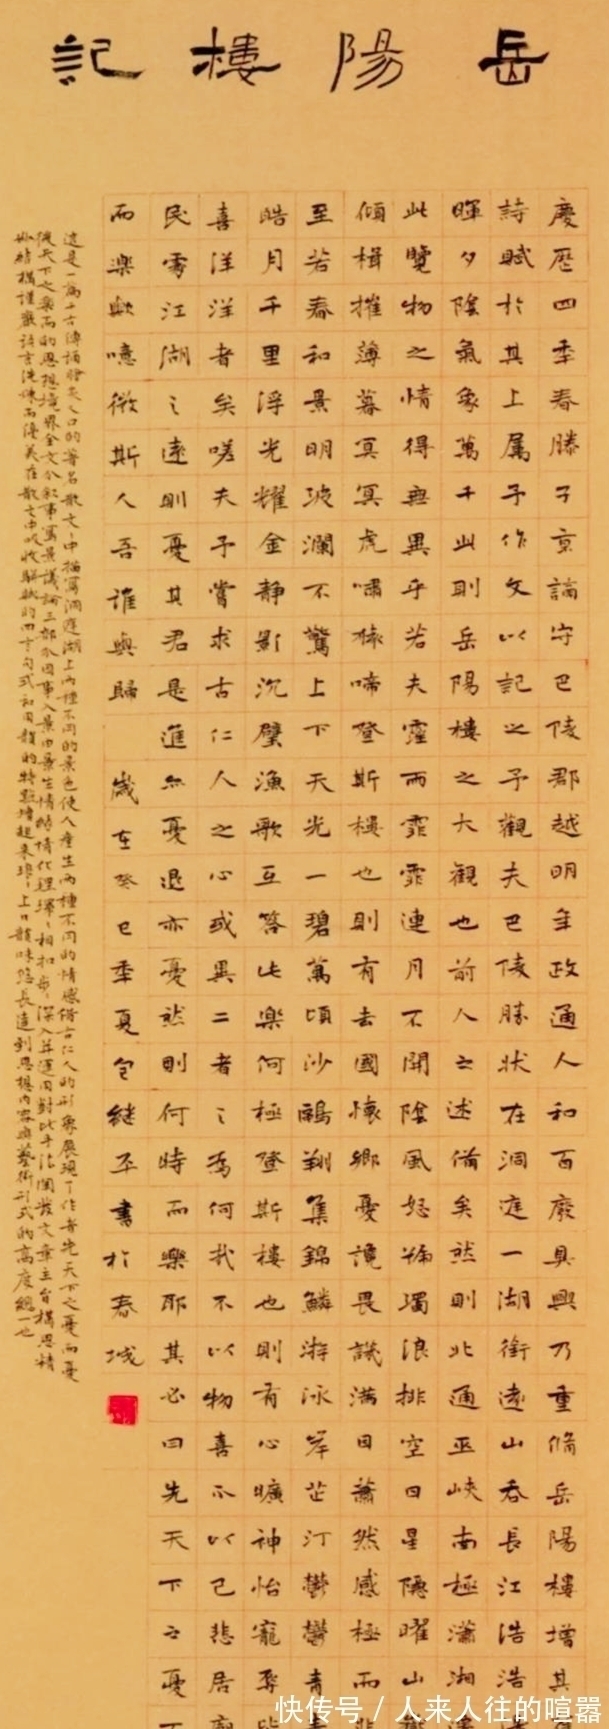 岳陽樓記
慶歷四年春滕子京謫守巴陵郡越明年政通人和百廢具興乃重脩岳陽樓增其
詩賦於其上属予作文以記之予觀夫巴陵勝狀在洞庭一湖銜遠山吞長江浩浩
暉夕陰氣象萬千此則岳陽樓之大觀也前人之述備矣然則北通巫峽南極瀟湘
此覽物之情得無異乎若夫霪雨霏霏連月不開陰風怒號濁浪排空日星隱曜山
傾楫摧薄暮冥冥虎嘯猿啼登斯樓也則有去國懷鄉憂讒畏譏滿目蕭然感極而
至若春和景明波瀾不驚上下天光一碧萬頃沙鷗翔集錦鱗游泳岸芷汀鬱鬱青
皓月千里浮光耀金靜影沉璧漁歌互答此樂何極登斯樓也則有心曠神怡寵辱
喜洋洋者矣嗟夫予嘗求古仁人之心或異二者之為何哉不以物喜不以己悲居
民處江湖之遠則憂其君是進亦憂退亦憂然則何時而樂耶其必曰先天下之憂
而樂歟噫微斯人吾誰與歸 歲在癸巳年夏包繼平書於春城
這是一篇千古傳誦膾炙人口的著名散文文中描寫洞庭湖上兩種不同的景色使人產生兩種不同的情感借古仁人的形象展現了作者先天下之憂而憂
後天下之樂而樂的思想境界全文分敘事寫景議論三部分因事入景由景生情
妙結構謹嚴語言洗練而優美在散文中吸收駢賦的四字句式和用韻的特點上口韻味悠長達到思想內容與藝術形式的高度統一也
快传号／人来人往的喧嚣